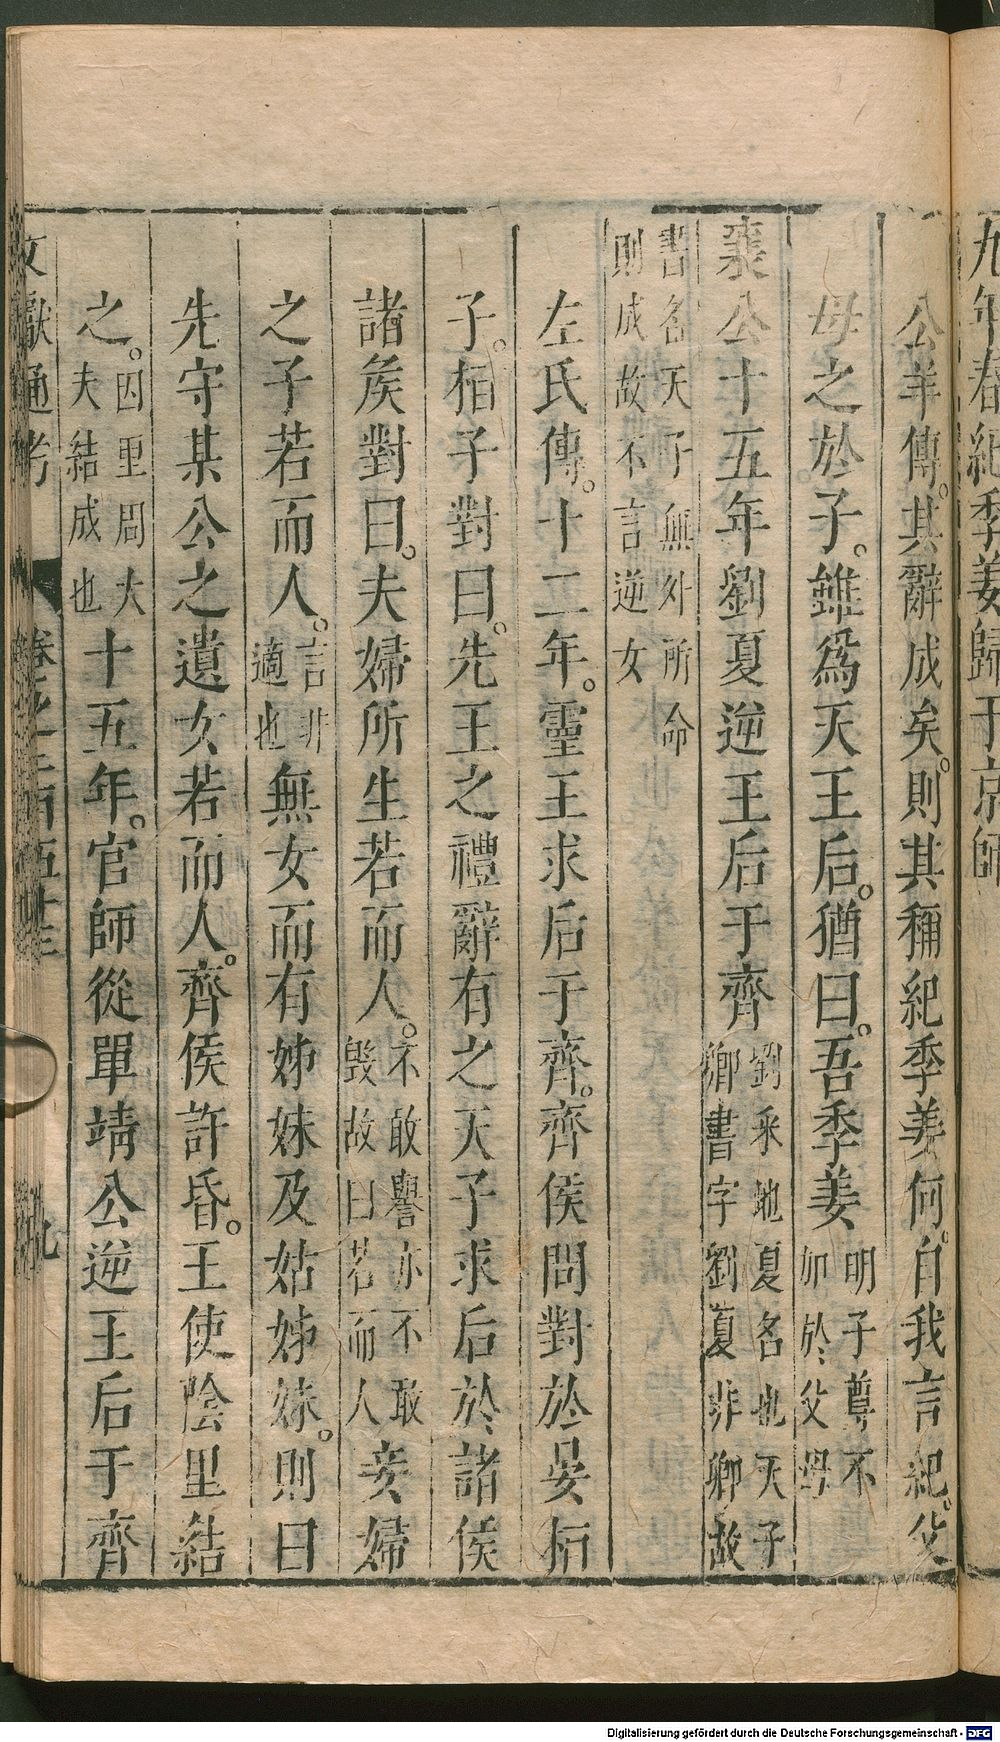 九年春紀季姜歸于京師
公羊傳。其辭成矣。則其稱紀季姜何。自我言紀。父
母之於子。雖爲天王后。猶曰。吾季姜明子尊不加於父母
襄公十五年劉夏逆王后于齊劉采地夏名也天子卿書字劉夏非卿故
書名天子無外所命則成故不言逆女
左氏傳。十二年。靈王求后于齊。齊侯問對於晏桓
子。桓子對曰。先王之禮辭有之天子求后於諸侯
諸矦對曰。夫婦所生若而人。不敢譽亦不敢毀故曰若而人妾婦
之子若而人。言非適也無女而有姊妹及姑姊妹。則曰
先守某公之遺女若而人。齊侯許昏。王使陰里結
之。因里周大夫結成也十五年。官師從單靖公逆王后于齊
文獻通考
卷之二百五十三
九
Digitalisierung gefördert durch die Deutsche Forschungsgemeinschaft - DFG